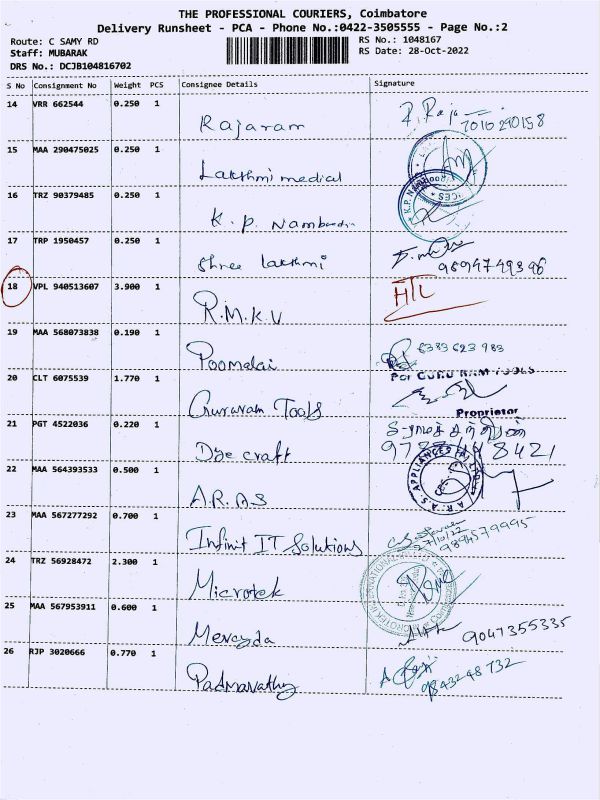 THE PROFESSIONAL COURIERS, Coimbatore
Delivery Runsheet - PCA - Phone No.:0422-3505555 - Page No.:2
Route: C SAMY RD
RS No.: 1048167
Staff: MUBARAK
RS Date: 28-Oct-2022
DRS No.: DCJB104816702
S No Consignment No Weight PCS Consignee Details Signature
14 VRR 662544 0.250 1 Rajaram R. Raja 7010290158
15 MAA 290475025 0.250 1 Lakshmi medical
16 TRZ 90379485 0.250 1 K. P. K.P. NAMBOODIRI
17 TRP 1950457 0.250 1 Shree Lakshmi 9894749396
18 VPL 940513607 3.900 1 R.M.K.V HTL
19 MAA 568073838 0.190 1 Poomalai 6383623983
20 CLT 6075539 1.770 1 Gururam Tools For GURU RAM TOOLS
Proprietor
21 PGT 4522036 0.220 1 Dye craft 8421
22 MAA 564393533 0.500 1 A.R.A.S A.R.A.S. APPLIANCES
23 MAA 567277292 0.700 1 Infinit IT Solutions 27/10/22 9894579995
24 TRZ 56928472 2.300 1 Microtek MICROTEK INTERNATIONAL
25 MAA 567953911 0.600 1 9047355335
26 RJP 3020666 0.770 1 Padmavathy 9843248732